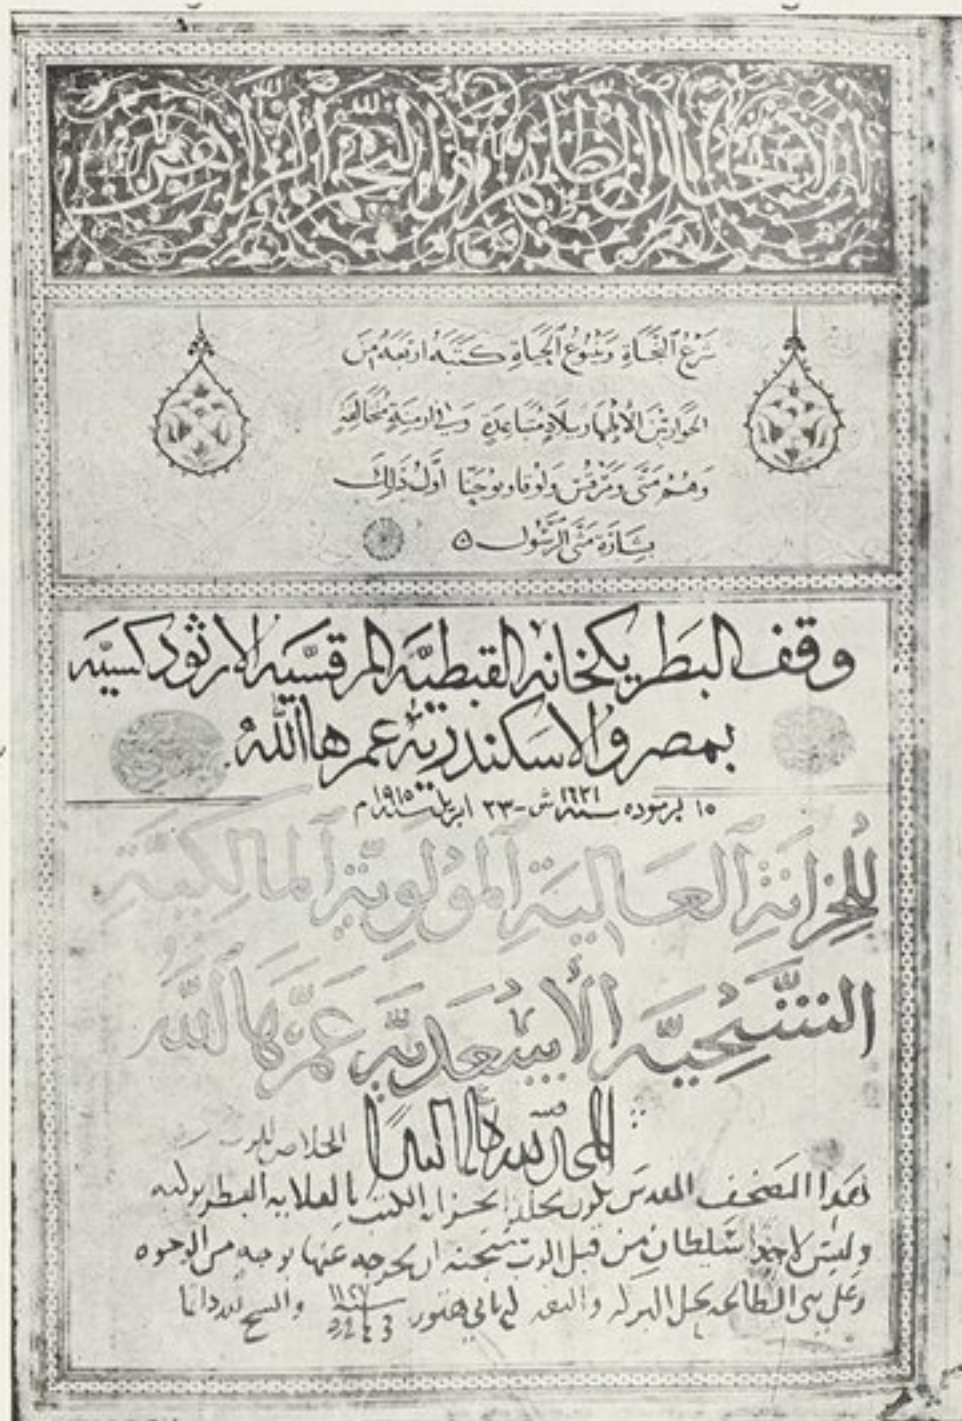 الانجيل الطاهر والنجم الزاهر
شَرْعُ ٱلنَّجَاةِ وَيَنْبُوعُ ٱلحَيَاةِ كَتَبَهُ أَرْبَعَة مِنَ
الحَوَاريّنَ الأَطهَارِ ببلَادٍ مُتَبَاعِدَةٍ وَفي ازمِنَةٍ مُخَالِفَةٍ
وَهُمْ مَتَّى وَمَرْقُسْ وَلُوقَا وَيُوحَنَّا أَوَّلُ ذَلِكَ
بِشَارَةُ مَتَّى الرَّسُول ه
وقف البَطريكخانه القبطيَّه المرقسيَّه الارثودكسيَّه
بمصر والاسكندريه عمرها اللهُ
١٥ برموده سنة ١٦٣١ش - ٢٣ ابريل سنة ١٩١٥م
لِلخِزَانَةِ ٱلعَالِيَةِ ٱلمَوْلَويَّةِ ٱلمَالِكِيَّةِ
الأَسْعَديَّه عَمَّرَهَا اللَّه
المجد لله دائما
الخلاص للرب
هَذا المصْحَف المقدس يكون مخلدًا بخزانة الكتب بالقلايه البطريركيه
وليسَ لاحدٍ سُلطان من قبل الرب سُبحنه ان يخرجه عنها بوجه من الوجوه
وعلى بني الطاعه تحل البركه هتور سنة والسبح لله دايما